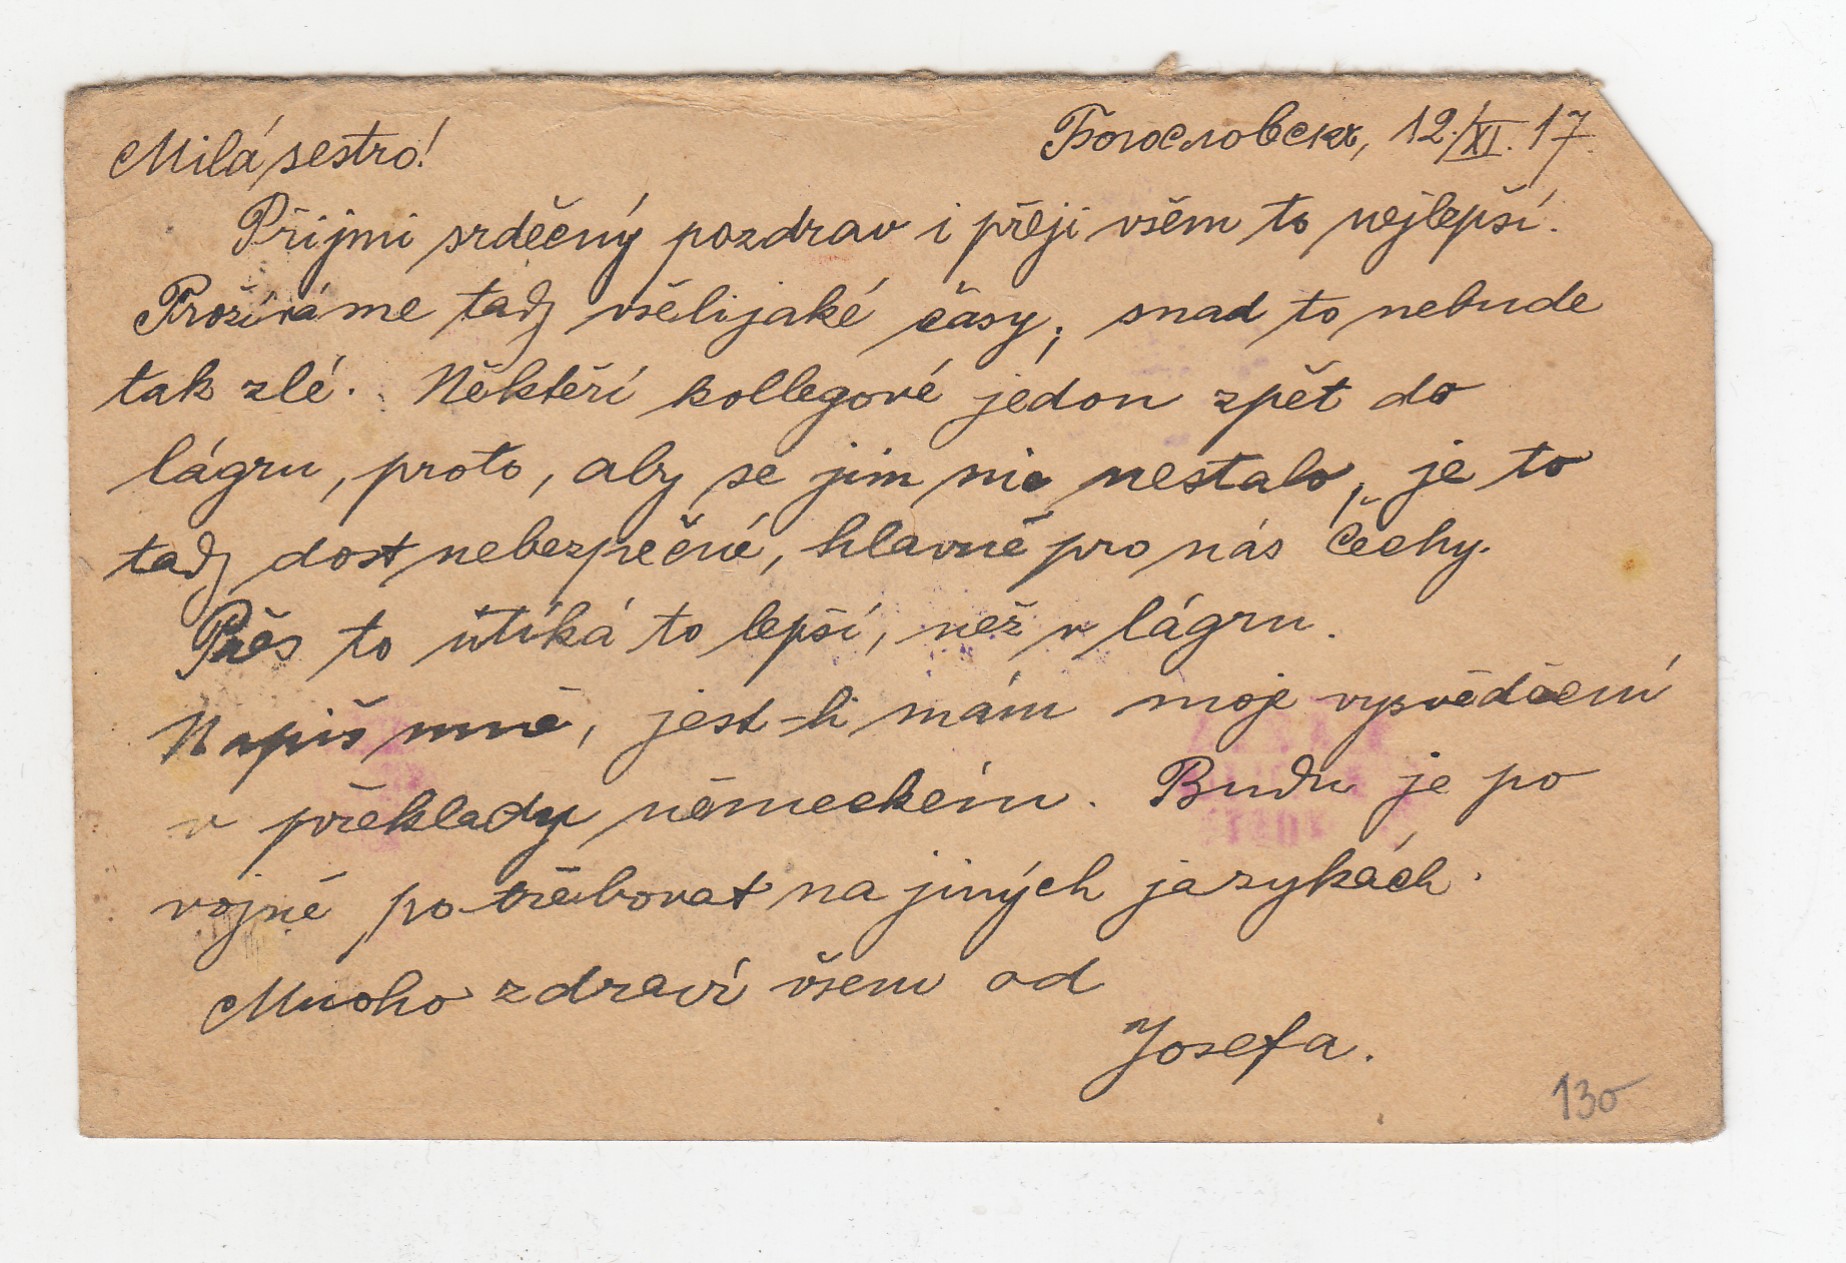 Milá sestro!
Богословскъ, 12./XI. 17.
Přijmi srděčný pozdrav i přeji všěm to nejlepší.
Prožíváme tady všělijaké časy, snad to nebude
tak zlé. Někteří kollegové jedou zpět do
lágru, proto, aby se jim nic nestalo, je to
tady dost nebezpečné, hlavně pro nás Čechy.
Přěs to utíká to lepší, než v lágru.
Napiš mně, jest-li mám moje vysvědčení
v překlady německém. Budu je po
vojně potřěbovat na jiných jazykách.
Mnoho zdraví všem od
Josefa.
130